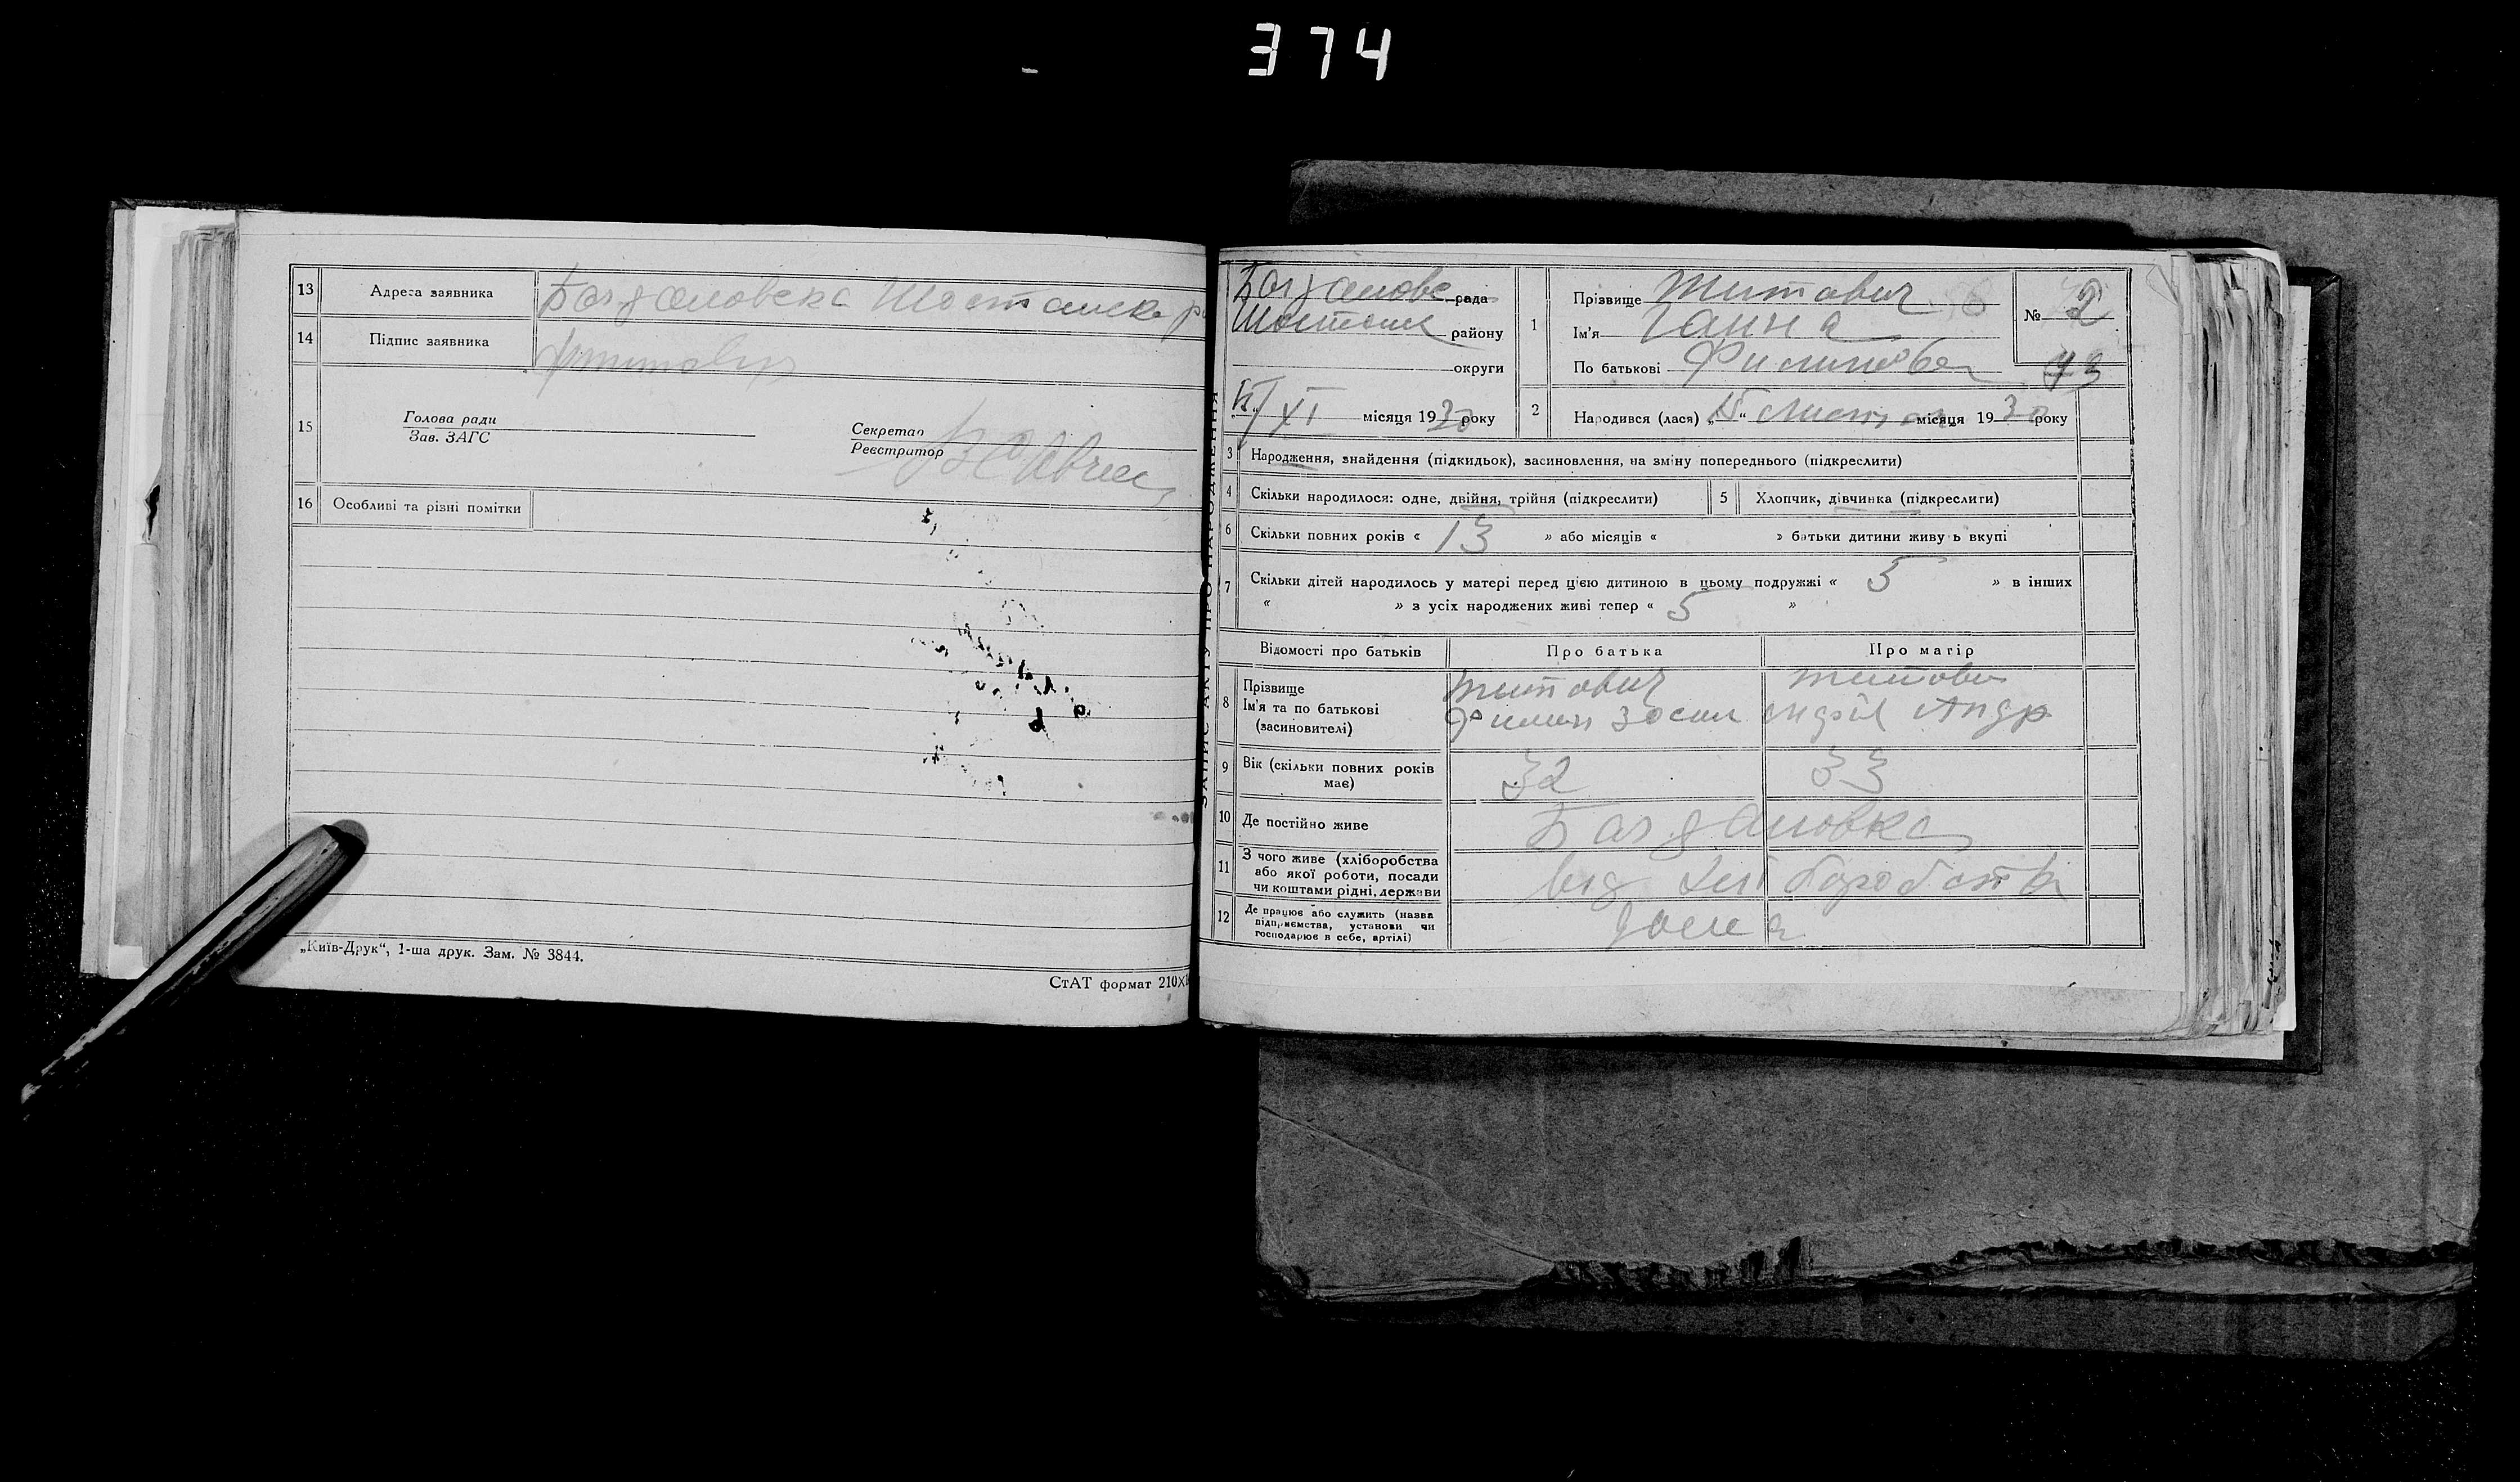 374
13 Адреса заявника Богдановска Шостанске р
14 Підпис заявника
15 Голова ради
Зав. ЗАГС
Секретар
Реєстратор
16 Особливі та різні помітки
„Київ-Друк“, 1-ша друк. Зам. № 3844.
СтАТ формат 210х
ЗАПИС АКТУ ПРО НАРОДЖЕННЯ
Богданове рада
району
округи
XI місяця 1930 року
1 Прізвище Титович
Ім'я Ганна
По батькові Филипова
№ 2
73
2 Народився (лася) „ “ Листоп місяця 1930 року
3 Народження, знайдення (підкидьок), засиновлення, на зміну попереднього (підкреслити)
4 Скільки народилося: одне, двійня, трійня (підкреслити)
5 Хлопчик, дівчинка (підкреслити)
6 Скільки повних років « 13 » або місяців « » батьки дитини живуть вкупі
7 Скільки дітей народилось у матері перед цією дитиною в цьому подружжі « 5 » в інших
« » з усіх народжених живі тепер « 5 »
Відомості про батьків Про батька Про матір
8 Прізвище Титович Титович
Ім'я та по батькові Филип Зосим Андр
(засиновителі)
9 Вік (скільки повних років має) 32 33
10 Де постійно живе Богдановка
11 З чого живе (хліборобства
або якої роботи, посади
чи коштами рідні, держави
від хліборобства
12 Де працює або служить (назва
підприємства, установи чи
господарює в себе, артілі)
дома